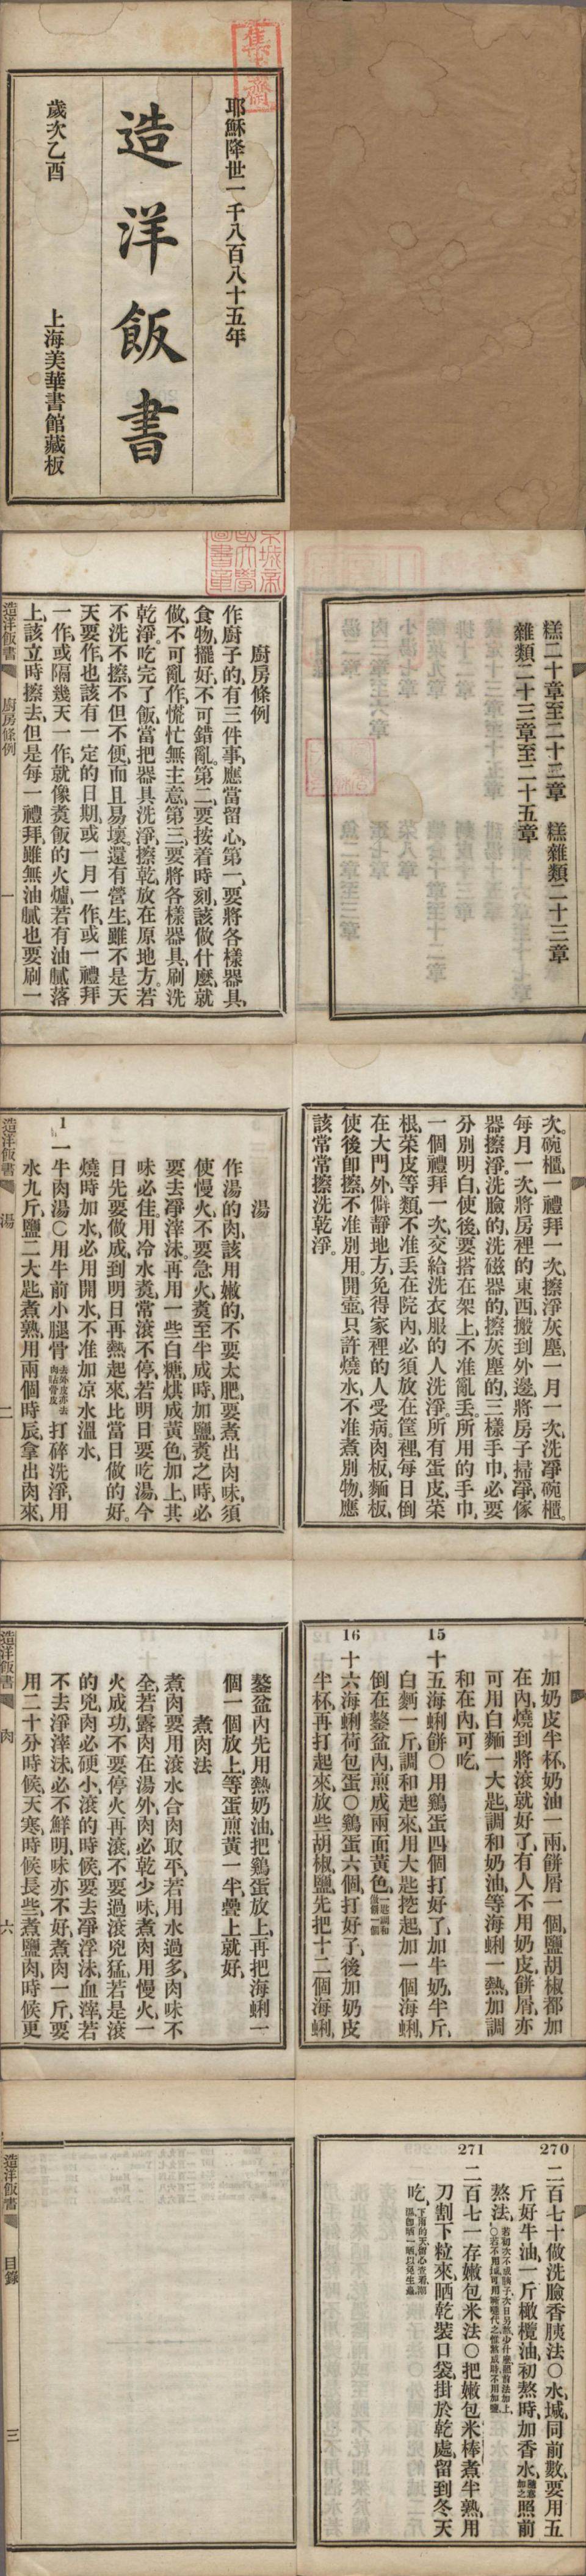 耶穌降世一千八百八十五年
造洋飯書
歲次乙酉
上海美華書館藏板
糕二十章至二十三章　糕雜類二十三章
雜類二十三章至二十五章
廚房條例
作廚子的、有三件事、應當留心、第一、要將各樣器具、
食物、擺好、不可錯亂。第二、要按着時刻、該做什麼、就
做、不可亂作、慌忙無主意、第三、要將各樣器具、刷洗
乾淨。吃完了飯、當把器具洗淨、擦乾、放在原地方、若
不洗不擦、不但不便、而且易壞、還有營生、雖不是天
天要作、也該有一定的日期、或一月一作、或一禮拜
一作、或隔幾天一作、就像煑飯的火爐、若有油膩落
上、該立時擦去、但是每一禮拜、雖無油膩、也要刷一
造洋飯書
廚房條例
一
次、碗櫃、一禮拜一次、擦淨灰塵、一月一次、洗淨碗櫃。
每月一次、將房裡的東西、搬到外邊、將房子掃淨、傢
器擦淨、洗臉的、洗磁器的、擦灰塵的、三樣手巾、必要
分別明白、使後、要搭在架上、不准亂丟。所用的手巾、
一個禮拜一次、交給洗衣服的人洗淨、所有蛋皮、菜
根、菜皮等類、不准丟在院內、必須放在筐裡、每日倒
在大門外僻靜地方、免得家裡的人受病、肉板、麵板、
使後卽擦、不准別用、開壺、只許燒水、不准煮別物、應
該常常擦洗乾淨。
湯
作湯的肉、該用嫩的、不要太肥、要煮出肉味、須
使慢火、不要急火、煑至半成時、加鹽、煑之時、必
要去凈滓沫、再用一些白糖、烘成黃色、加上、其
味必佳、用冷水煑、常滾不停、若明日要吃湯、今
日先要做成、到明日再熱起來、比當日做的好。
燒時加水、必用開水、不准加凉水溫水、
1　一牛肉湯〇用牛前小腿骨去外皮亦去肉貼骨皮打碎洗淨、用
水九斤、鹽二大匙、煮熟、用兩個時辰、拿出肉來、
造洋飯書
湯
二
加奶皮半杯、奶油一兩、餅屑一個、鹽胡椒都加
在內、燒到將滾就好了、有人不用奶皮、餅屑、亦
可用白麵一大匙、調和奶油、等海蜊一熱、加調
和在內、可吃、
15　十五海蜊餅〇用鷄蛋四個、打好了、加牛奶半斤、
白麵一斤、調和起來、用大匙挖起、加一個海蜊、
倒在鏊盆內、煎成兩面黃色、一匙調和做餅一個
16　十六海蜊荷包蛋〇鷄蛋六個、打好了、後加奶皮
半杯、再打起來、放些胡椒鹽、先把十二個海蜊、
鏊盆內、先用熱奶油、把鷄蛋放上、再把海蜊一
個一個放上、等蛋煎黃一半、疊上就好、
煮肉法
煮肉要用滾水、合肉取平、若用水過多、肉味不
全、若露肉在湯外、肉必乾少味、煮肉用慢火、一
火成功、不要停火再滾、不要過滾兇猛、若是滾
的兇、肉必硬、小滾的時候、要去凈浮沫血滓、若
不去淨滓沫、必不鮮明、味亦不好、煮肉一斤、要
用二十分時候、天寒、時候長些、煮鹽肉、時候更
造洋飯書
肉
六
270　二百七十做洗臉香胰法〇水、堿、同前數、要用五
斤好牛油、一斤橄欖油、初熬時、加香水、隨意加之照前
熬法、
271　二百七一存嫩包米法〇把嫩包米棒煮半熟、用
刀割下粒來、晒乾、裝口袋、掛於乾處、留到冬天
吃、
造洋飯書
目錄
三